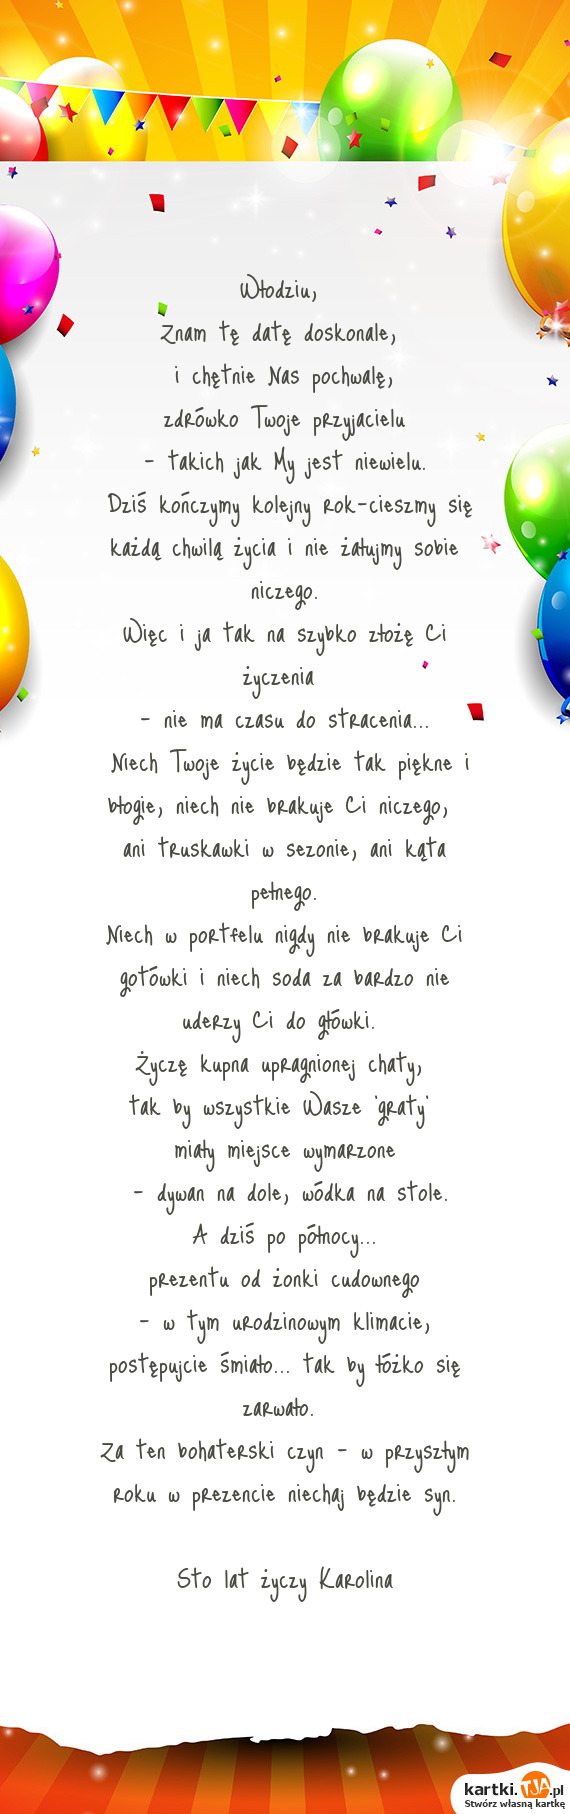 Włodziu,
Znam tę datę doskonale,
i chętnie Nas pochwalę,
zdrówko Twoje przyjacielu
- takich jak My jest niewielu.
Dziś kończymy kolejny rok-cieszmy się
każdą chwilą życia i nie żałujmy sobie
niczego.
Więc i ja tak na szybko złożę Ci
życzenia
- nie ma czasu do stracenia...
Niech Twoje życie będzie tak piękne i
błogie, niech nie brakuje Ci niczego,
ani truskawki w sezonie, ani kąta
pełnego.
Niech w portfelu nigdy nie brakuje Ci
gotówki i niech soda za bardzo nie
uderzy Ci do główki.
Życzę kupna upragnionej chaty,
tak by wszystkie Wasze 'graty'
miały miejsce wymarzone
- dywan na dole, wódka na stole.
A dziś po północy...
prezentu od żonki cudownego
- w tym urodzinowym klimacie,
postępujcie śmiało... tak by łóżko się
zarwało.
Za ten bohaterski czyn - w przyszłym
roku w prezencie niechaj będzie syn.
Sto lat życzy Karolina
kartki.TJA.pl
Stwórz własną kartkę